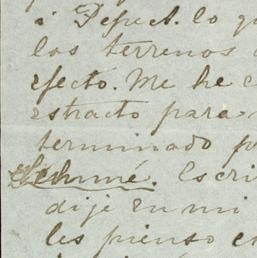 á Tepect. lo qu
los terrenos
efectó. Me he c
estracto para
terminado p
Escri
dije en mi
les pienso e